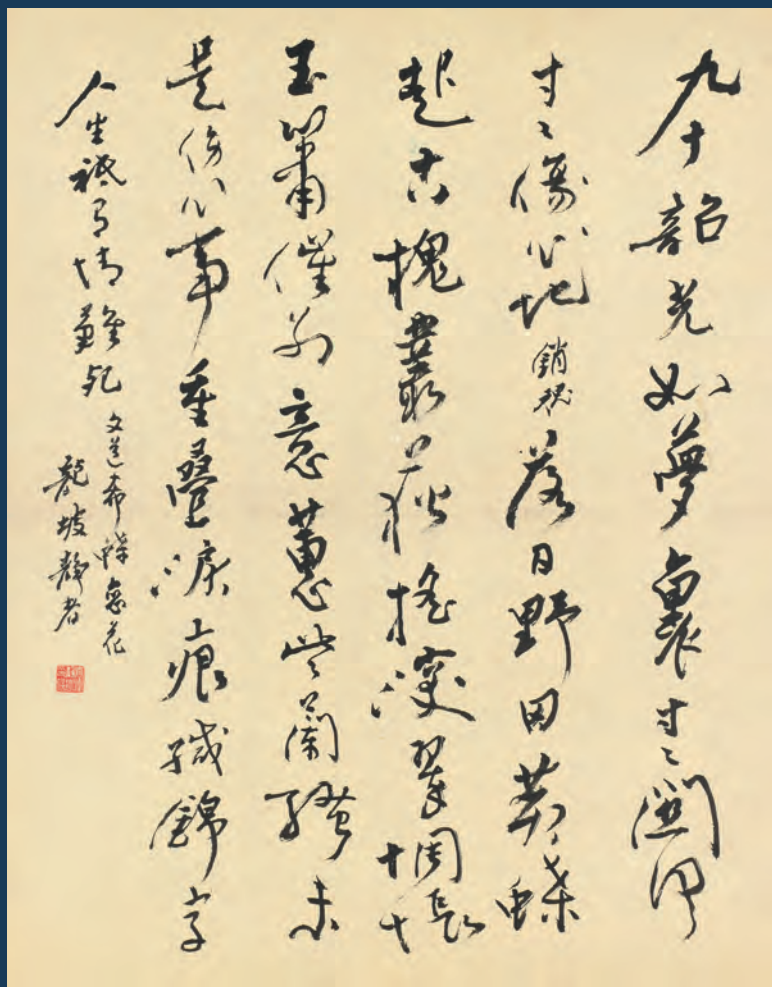 九十韶光如夢裏寸〻關河
寸〻傷心地銷魂落日野田黃蝶
起古槐叢荻搖深翠惆悵
玉簫催別意蕙些蘭騷未
是傷心事重疊淚痕緘錦字
人生祗有情難死文道希蝶戀花
龍坡靜者